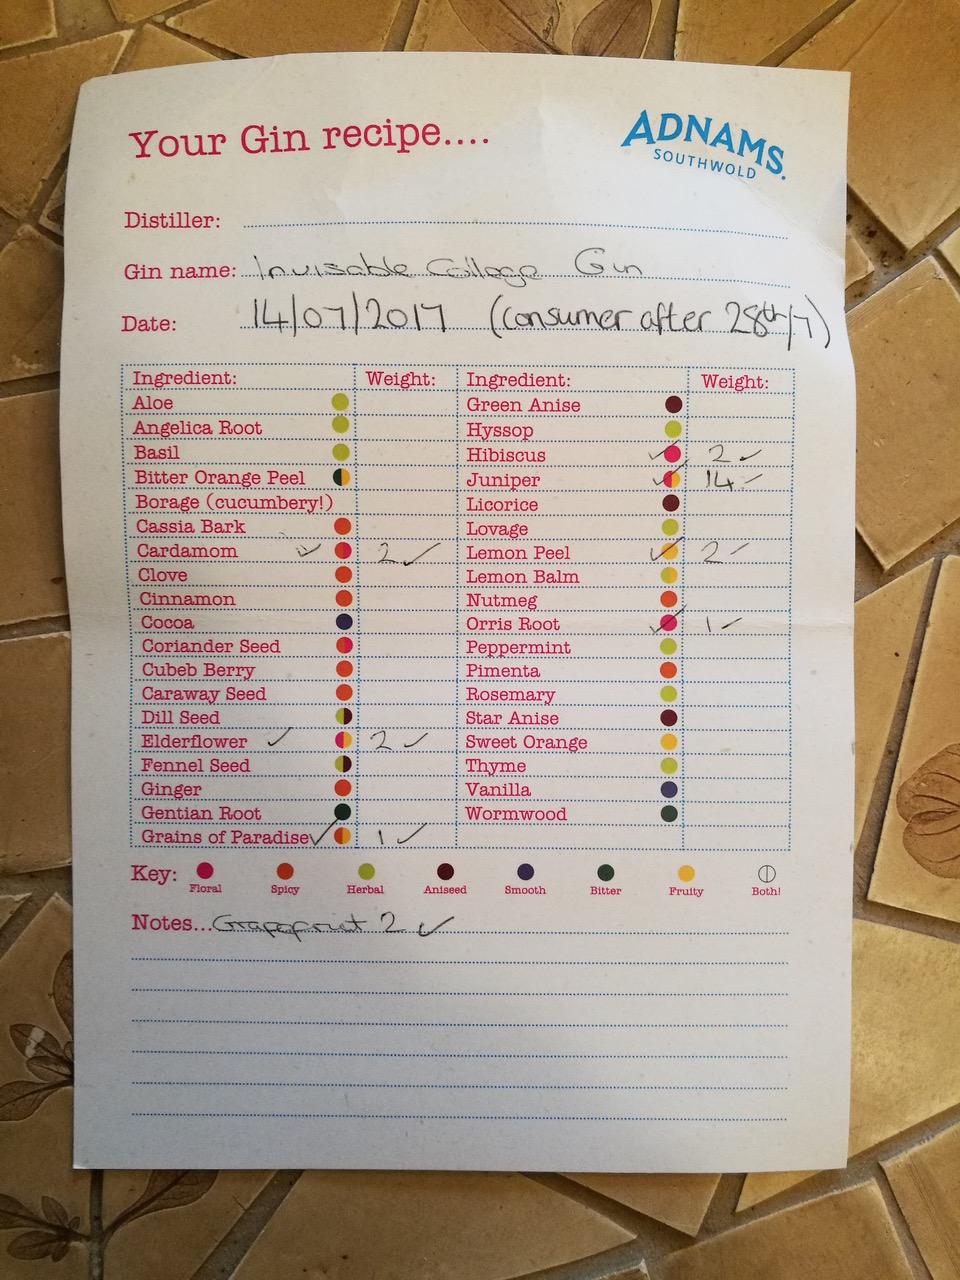 Your Gin recipe....
ADNAMS
SOUTHWOLD
Distiller:
Gin name: Invisable College Gin
Date: 14/07/2017 (consumer after 28th/7)
Ingredient: Weight: Ingredient: Weight:
Aloe Green Anise
Angelica Root Hyssop
Basil Hibiscus ✓ 2 ✓
Bitter Orange Peel Juniper ✓ 14 ✓
Borage (cucumbery!) Licorice
Cassia Bark Lovage
Cardamom ✓ 2 ✓ Lemon Peel ✓ 2 ✓
Clove Lemon Balm
Cinnamon Nutmeg
Cocoa Orris Root ✓ 1 ✓
Coriander Seed Peppermint
Cubeb Berry Pimenta
Caraway Seed Rosemary
Dill Seed Star Anise
Elderflower ✓ 2 ✓ Sweet Orange
Fennel Seed Thyme
Ginger Vanilla
Gentian Root Wormwood
Grains of Paradise ✓ 1 ✓
Key: Floral Spicy Herbal Aniseed Smooth Bitter Fruity Both!
Notes... Grapefruit 2 ✓